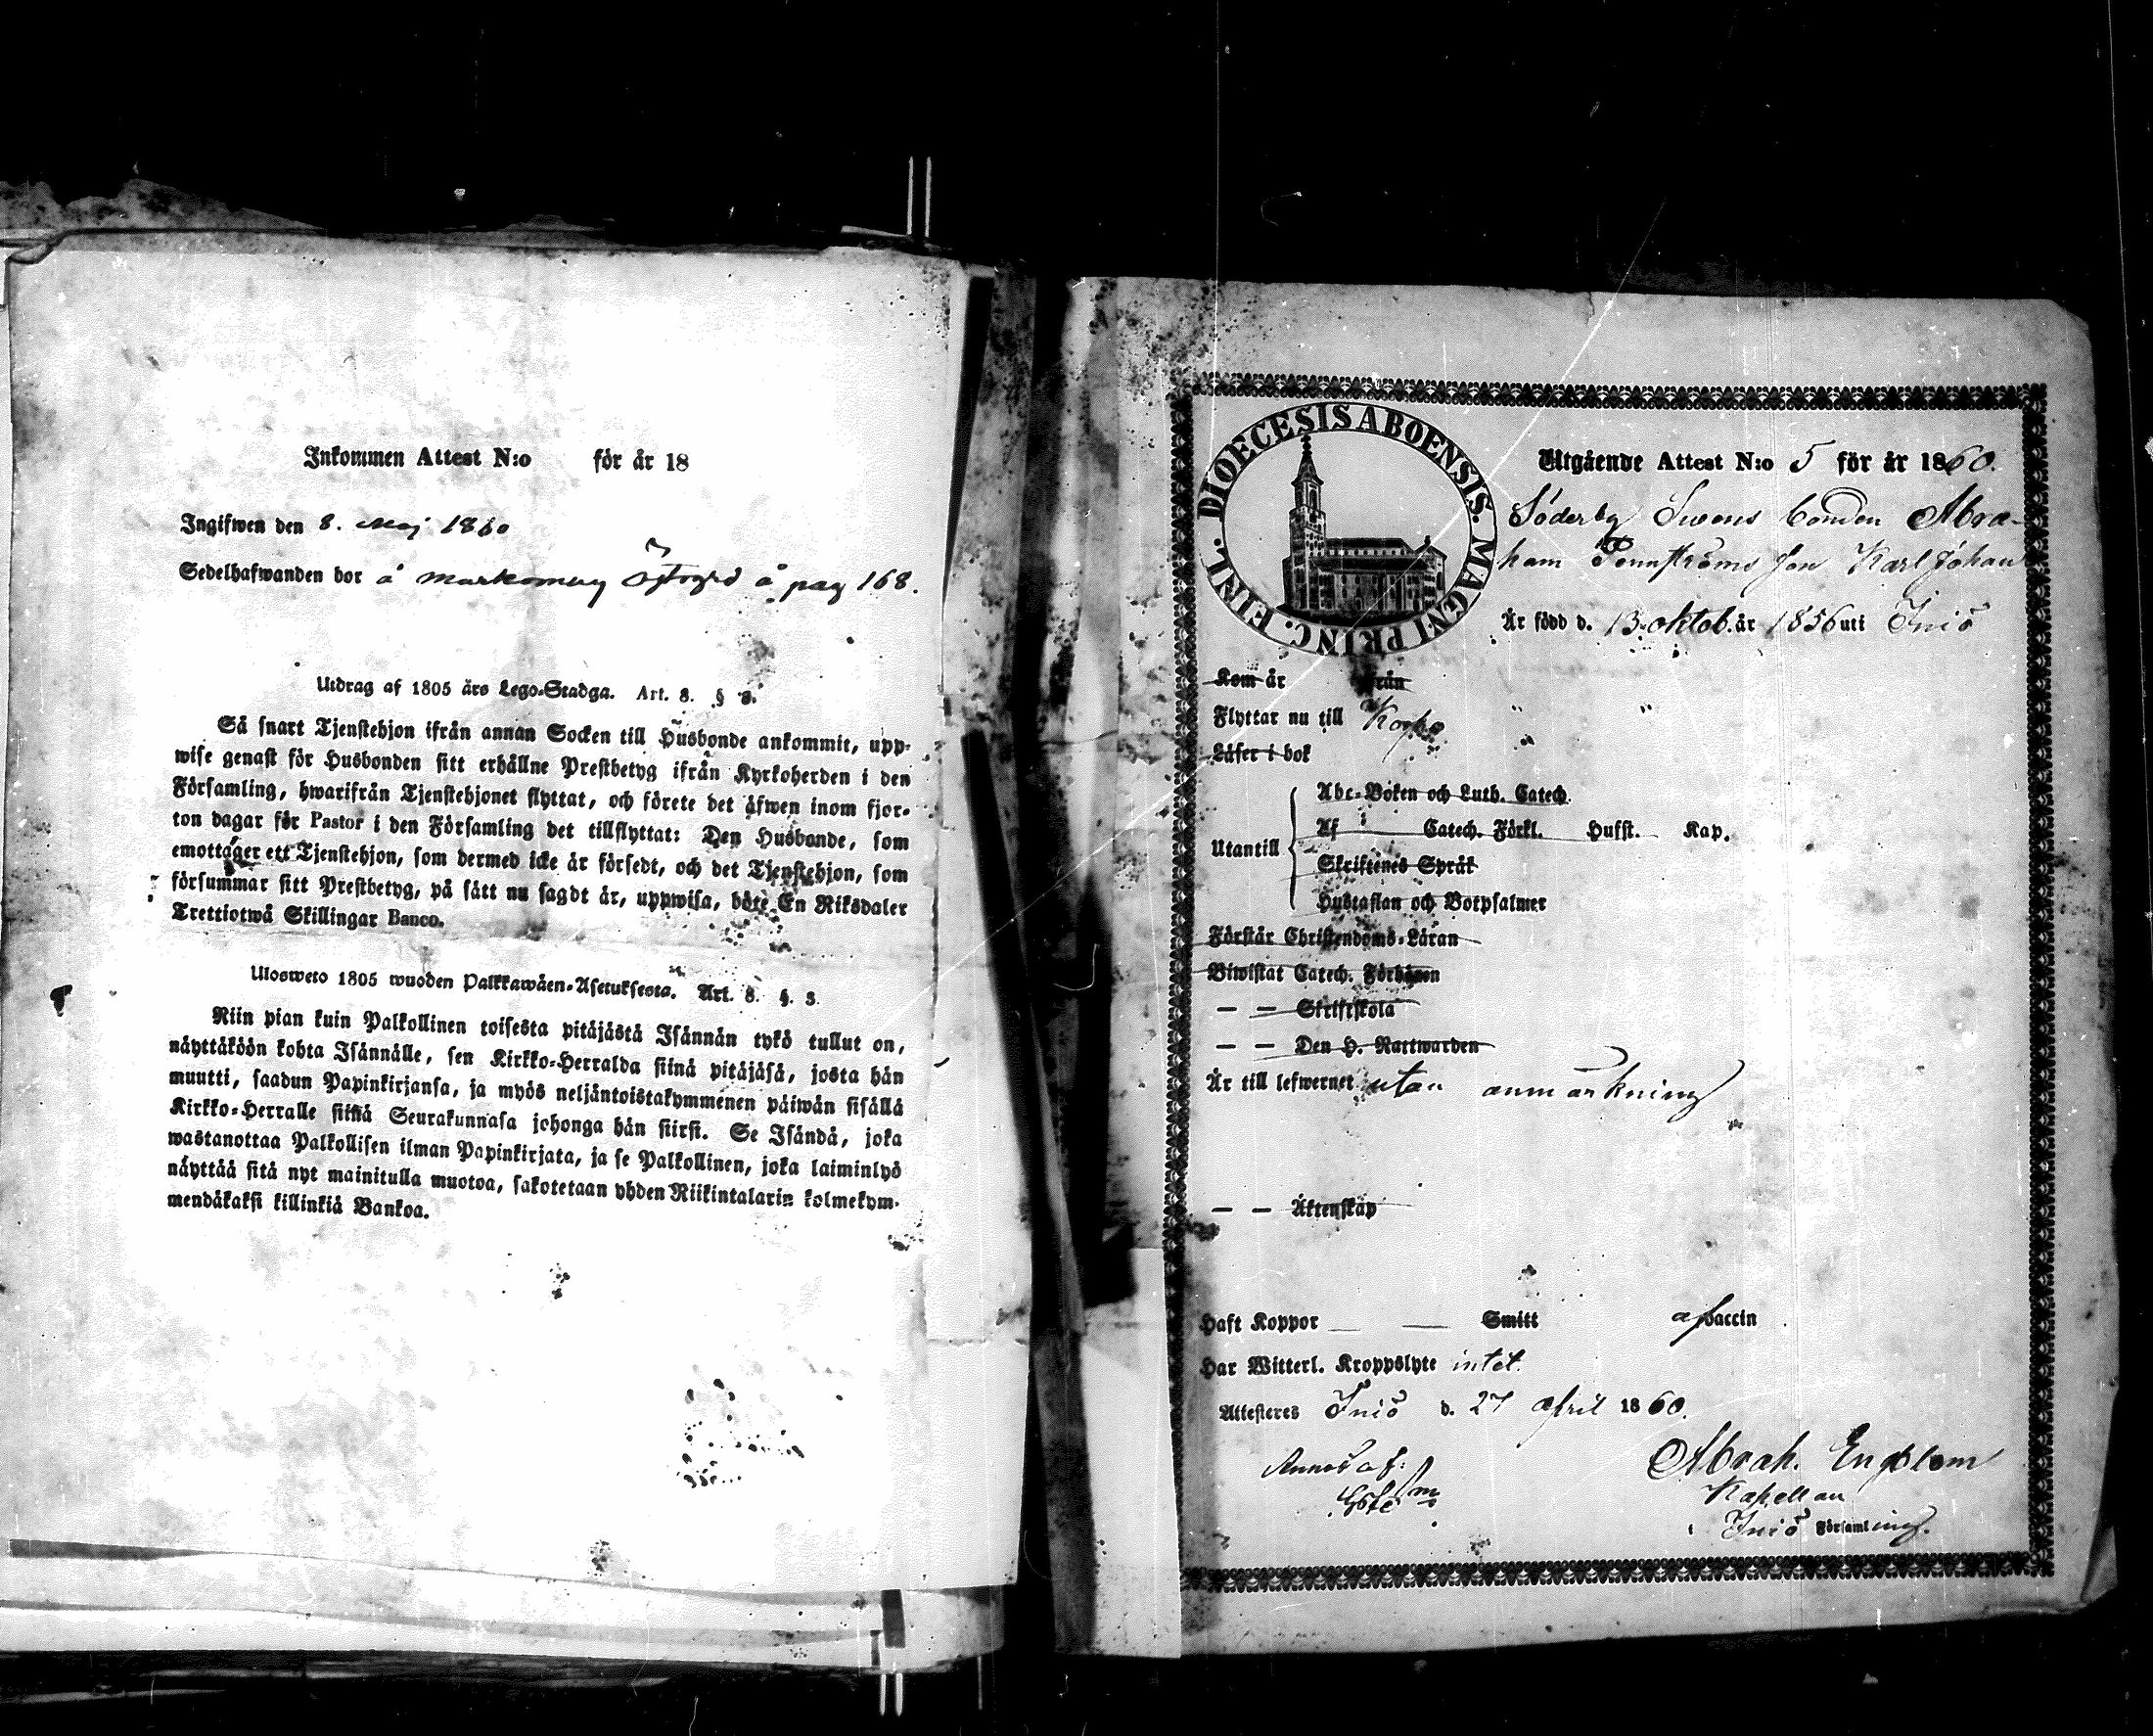 Inkommen Attest N:o för år 18
Ingifwen den 8. Maj 1860
Sedelhafwanden bor å markomby å pag 168.
Utdrag af 1805 års Lego-Stadga. Art. 8. § 3.
Så snart Tjenstehjon ifrån annan Socken till Husbonde ankommit, upp-
wise genast för Husbonden sitt erhållne Prestbetyg ifrån Kyrkoherden i den
Församling, hwarifrån Tjenstehjonet flyttat, och förete det äfwen inom fjor-
ton dagar för Pastor i den Församling det tillflyttat: Den Husbonde, som
emottager ett Tjenstehjon, som dermed icke är försedt, och det Tjenstehjon, som
försummar sitt Prestbetyg, på sätt nu sagdt är, uppwisa, böte En Riksdaler
Trettiotwå Skillingar Banco.
Ulosweto 1805 wuoden Palkkawäen-Asetuksesta. Art. 8. §. 3.
Niin pian kuin Palkollinen toisesta pitäjästä Isännän tykö tullut on,
näyttäköön kohta Isännälle, sen Kirkko-Herralda siinä pitäjäsä, josta hän
muutti, saadun Papinkirjansa, ja myös neljäntoistakymmenen päiwän sisällä
Kirkko-Herralle siinä Seurakunnasa johonga hän siirsi. Se Isändä, joka
wastanottaa Palkollisen ilman Papinkirjata, ja se Palkollinen, joka laiminlyö
näyttää sitä nyt mainitulla muotoa, sakotetaan yhden Riikintalarin kolmekym-
mendäkaksi killinkiä Bankoa.
DIOECESIS ABOENSIS. MAGNI PRINC. FINL.
Utgående Attest N:o 5 för år 1860.
Söderby Swens bonden Abra-
ham Tennströms son Karl Johan
Är född d. 13 oktob. år 1856 uti Iniö
Kom år från
Flyttar nu till Korpo
Läser i bok
Utantill
Abc-Boken och Luth. Catech.
Af Catech. Förkl. Husst. Kap.
Skriftenes Språk
Hustaflan och Botpsalmer
Förstår Christendoms-Läran
Biwistat Catech. Förhören
— — Skriftskola
— — Den H. Nattwarden
Är till lefwernet utan anmärkning
— — Äktenskap
Haft Koppor — — Smitt af vaccin
Har Witterl. Kroppslyte intet.
Attesteres Iniö d. 27 april 1860.
Abrah. Engblom
Kapellan
Iniö Församling.